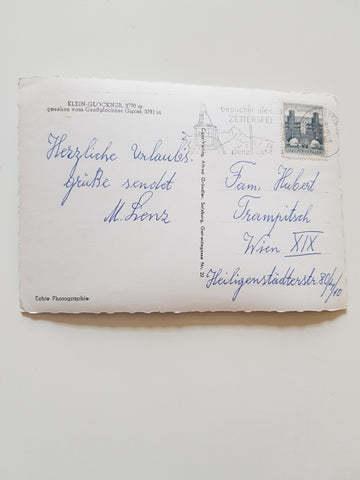 KLEIN-GLOCKNER, 3770 m
gesehen vom Großglockner Gipfel, 3798 m
besuchet die
ZETTERSFEL
Lienz
Herzliche Urlaubs-
grüße sendet
M. Lienz
Cosy-Verlag, Alfred Gründler, Salzburg, Nr. 22
Fam. Hubert
Trampitsch
Wien XIX
Heiligenstädterstr. 80/4/10
Echte Photographie